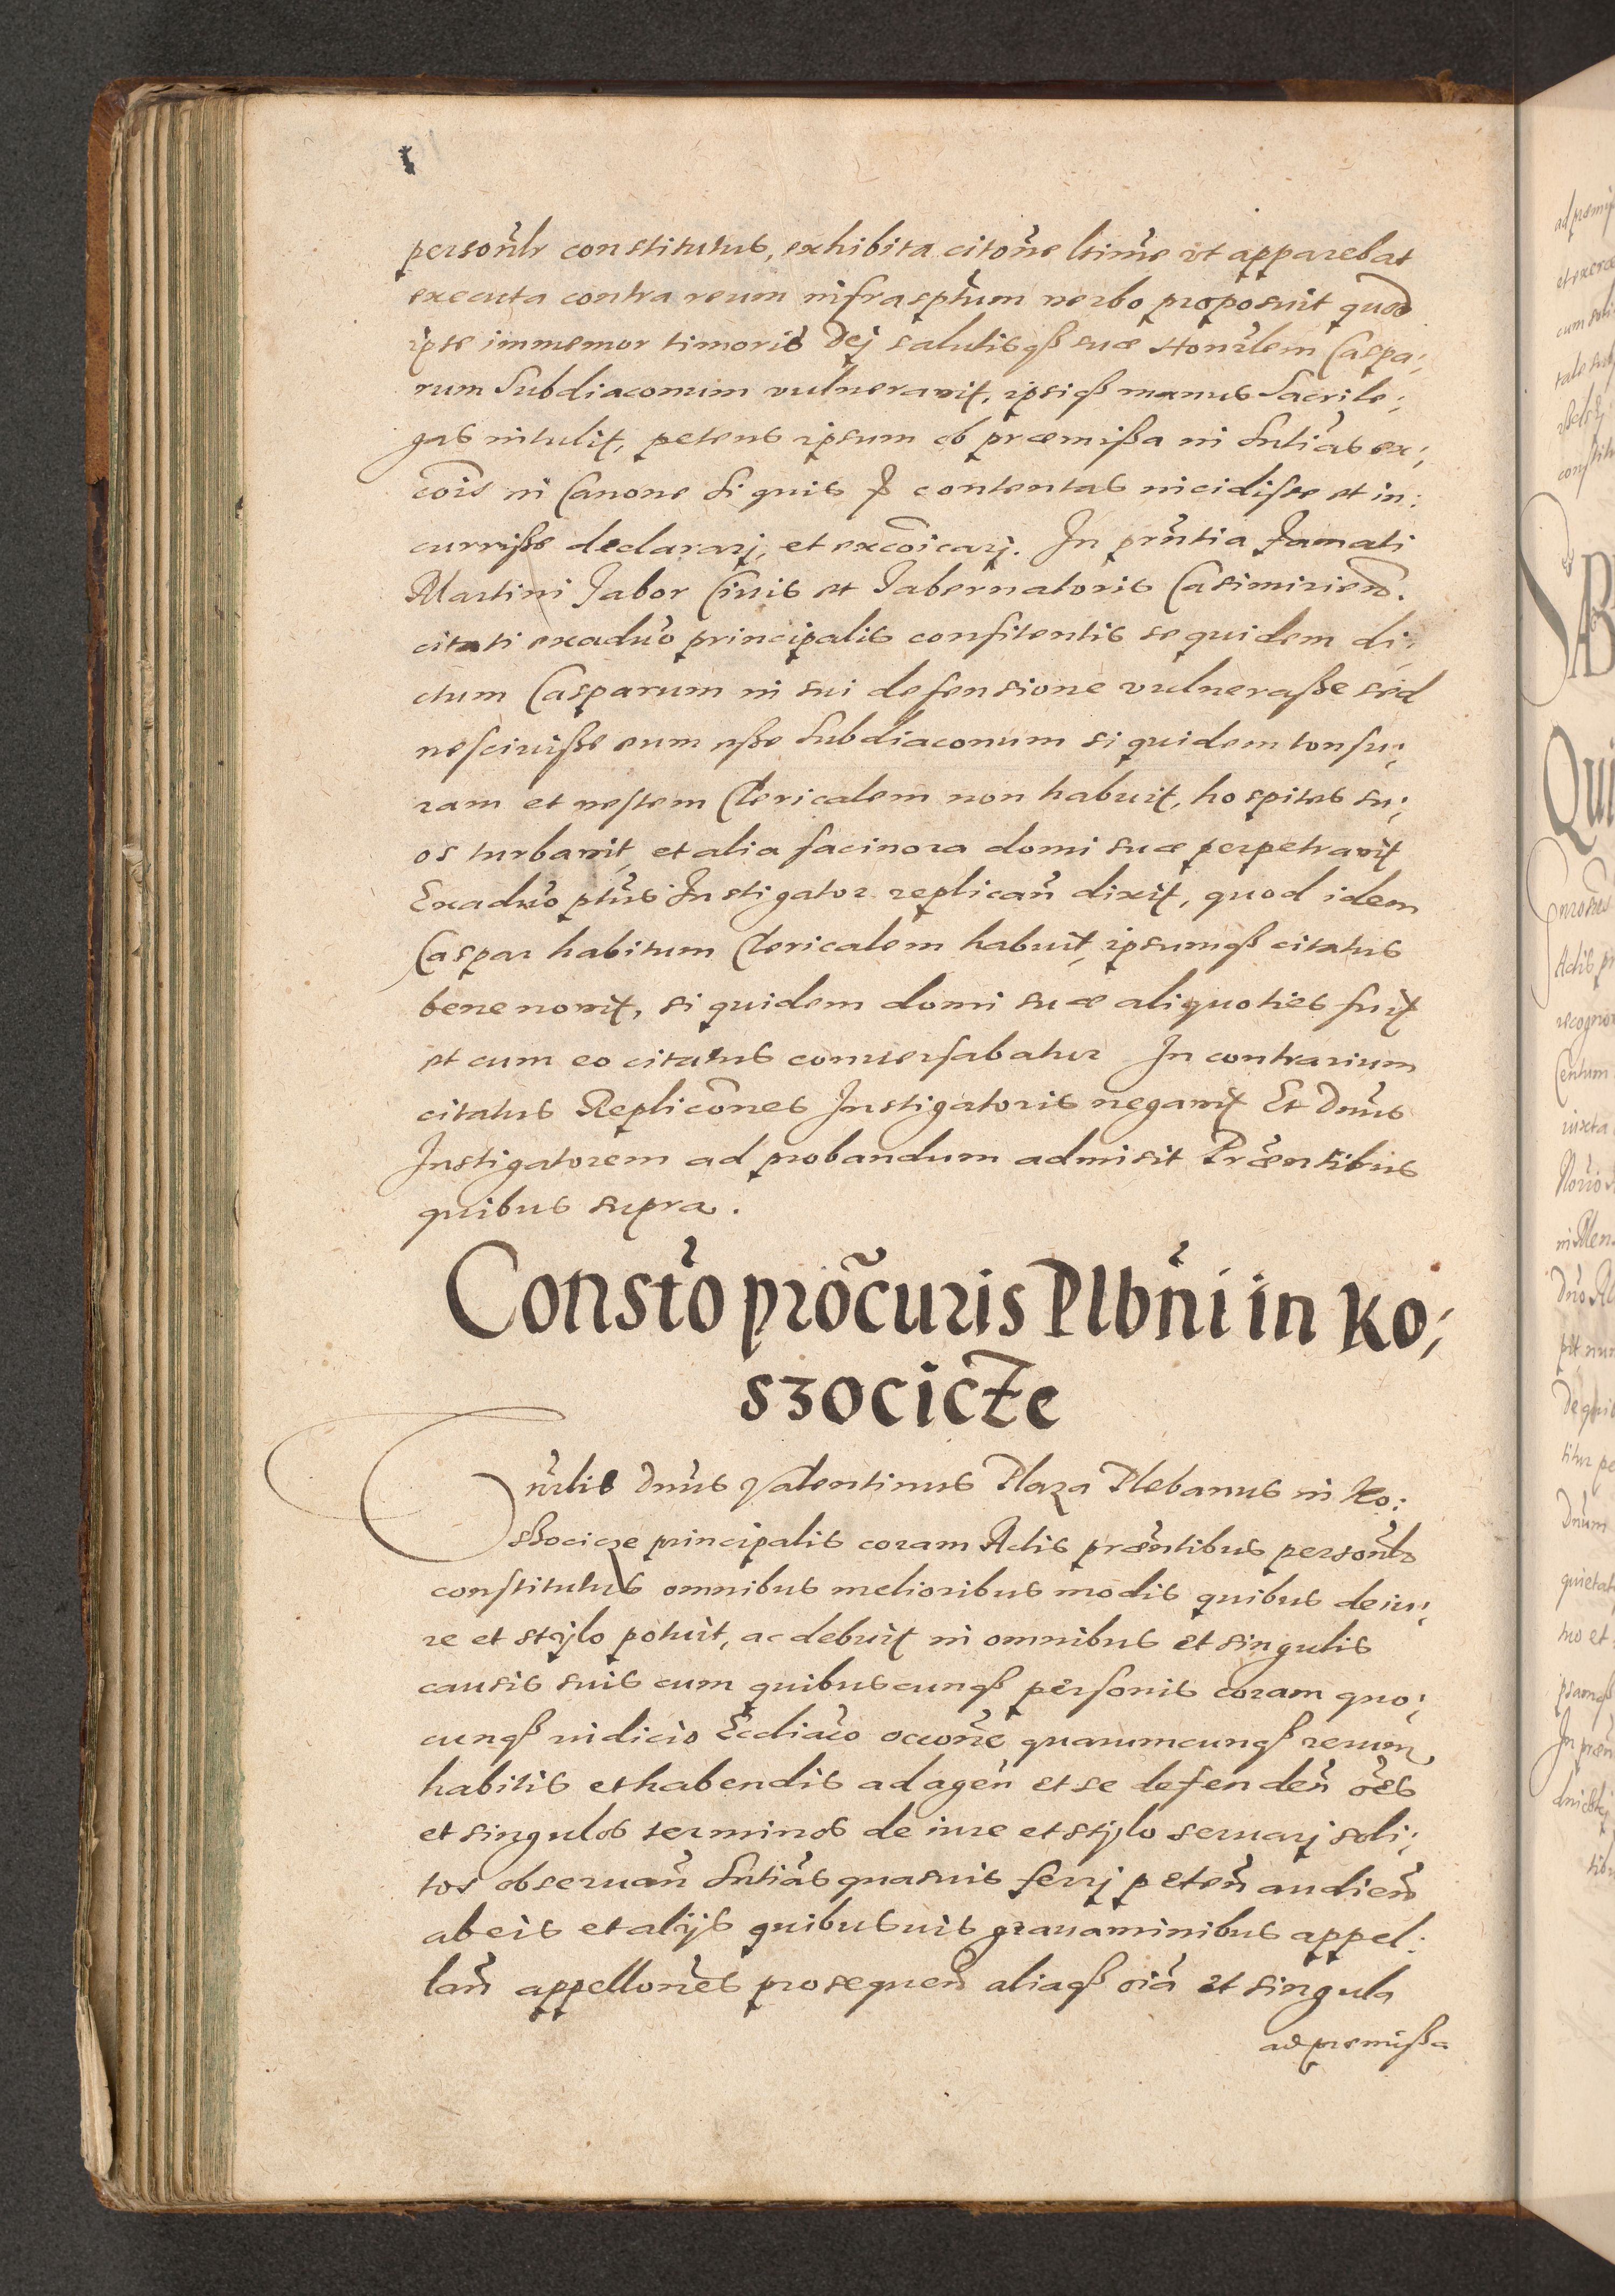 personlr constitutus, exhibita citone ltime vt apparebat
executa contra reum infrasptum verbo proposuit quod
ipse immemor timoris Dej salutisqß suæ Honrlem Caspa:
rum Subdiaconum vulneravit, ipsiqß manus Sacrile:
gas intulit, petens ipsum ob præmißa in Sntias ex:
cois in Canone Si quis contentas incidisse et in:
curriße declararj, et excoicarj. In prntia famati
Martini Tabor Civis et Tabernatoris Casimirien.
citati exaduo principalis confitentis se quidem di:
ctum Casparum in sui defensione vulneraße sed
nesciuiße eum eße Subdiaconum si quidem tonsu:
ram et vestem Clericalem non habuit, hospites su:
os turbavit et alia facinora domi suæ perpetravit
Exaduo ptus Instigator replican dixit, quod idem
Caspar habitum Clericalem habuit, ipsumqß citatus
bene novit, si quidem domi suæ aliquoties fuit
et cum eo citatus conuersabatur In contrarium
citatus Replicones Instigatoris negavit Et Dnus
Instigatorem ad probandum admisit Præntibus
quibus supra.
Consto procuris Plbni in Ko;
szocicze
nrlis Dnus Valentinus Plaza Plebanus in Ko:
ssocicze principalis coram Actis præntibus personlr
constitutus omnibus melioribus modis quibus de iu:
re et stylo potuit, ac debuit in omnibus et singulis
causis suis cum quibuscunqß personis coram quo:
cunqß iudicio Eccliaco occone quarumcunqß rerum
habitis et habendis ad agen et se defenden oes
et singulos terminos de iure et stylo seruarj soli:
tos obseruan Sntias quasuis ferrj peten audien
ab eis et alijs quibusuis grauaminibus appel:
lan appellones prosequen aliaqß oia et singula
ad premißa